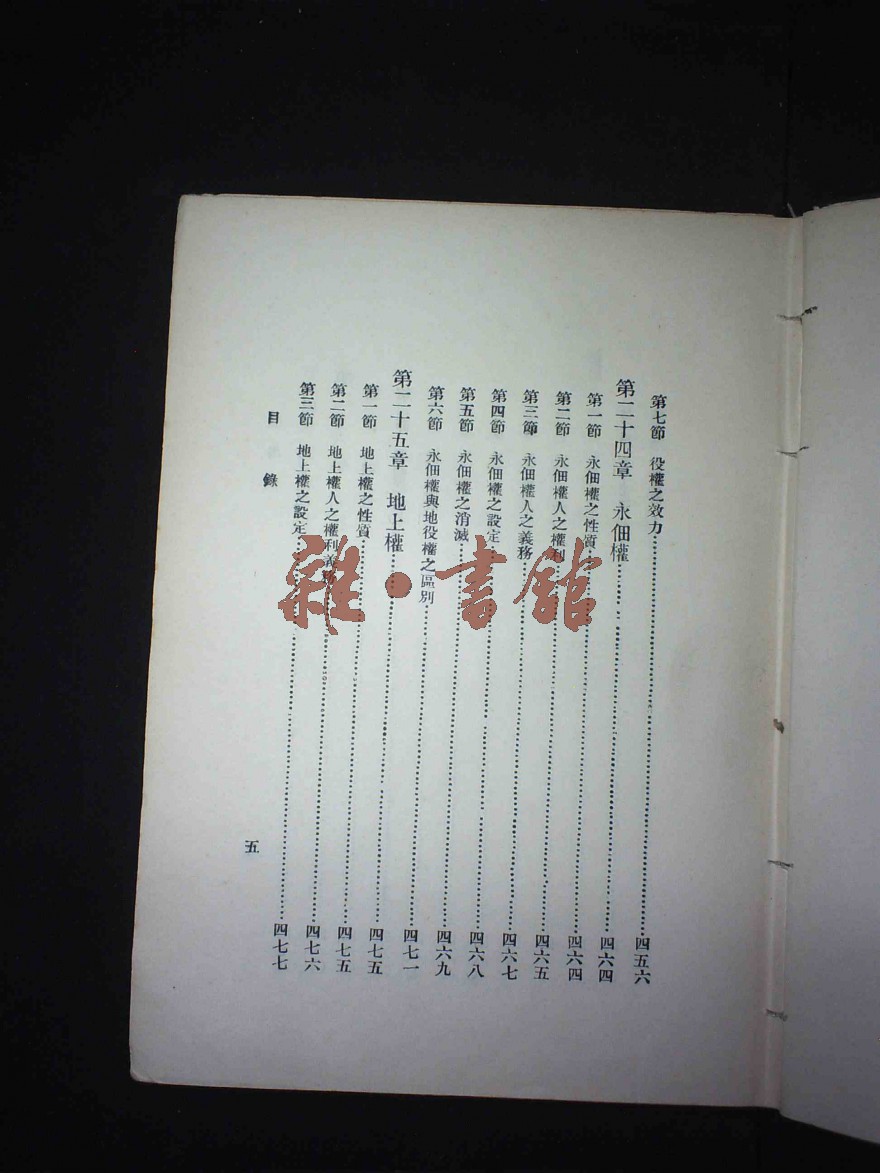 第七節 役權之效力……四五六
第二十四章 永佃權……四六四
第一節 永佃權之性質……四六四
第二節 永佃權人之權利……四六五
第三節 永佃權人之義務……四六七
第四節 永佃權之設定……四六八
第五節 永佃權之消滅……四六九
第六節 永佃權與地役權之區別……四七一
第二十五章 地上權……四七五
第一節 地上權之性質……四七五
第二節 地上權人之權利義務……四七六
第三節 地上權之設定……四七七
目錄 五
雜·書館